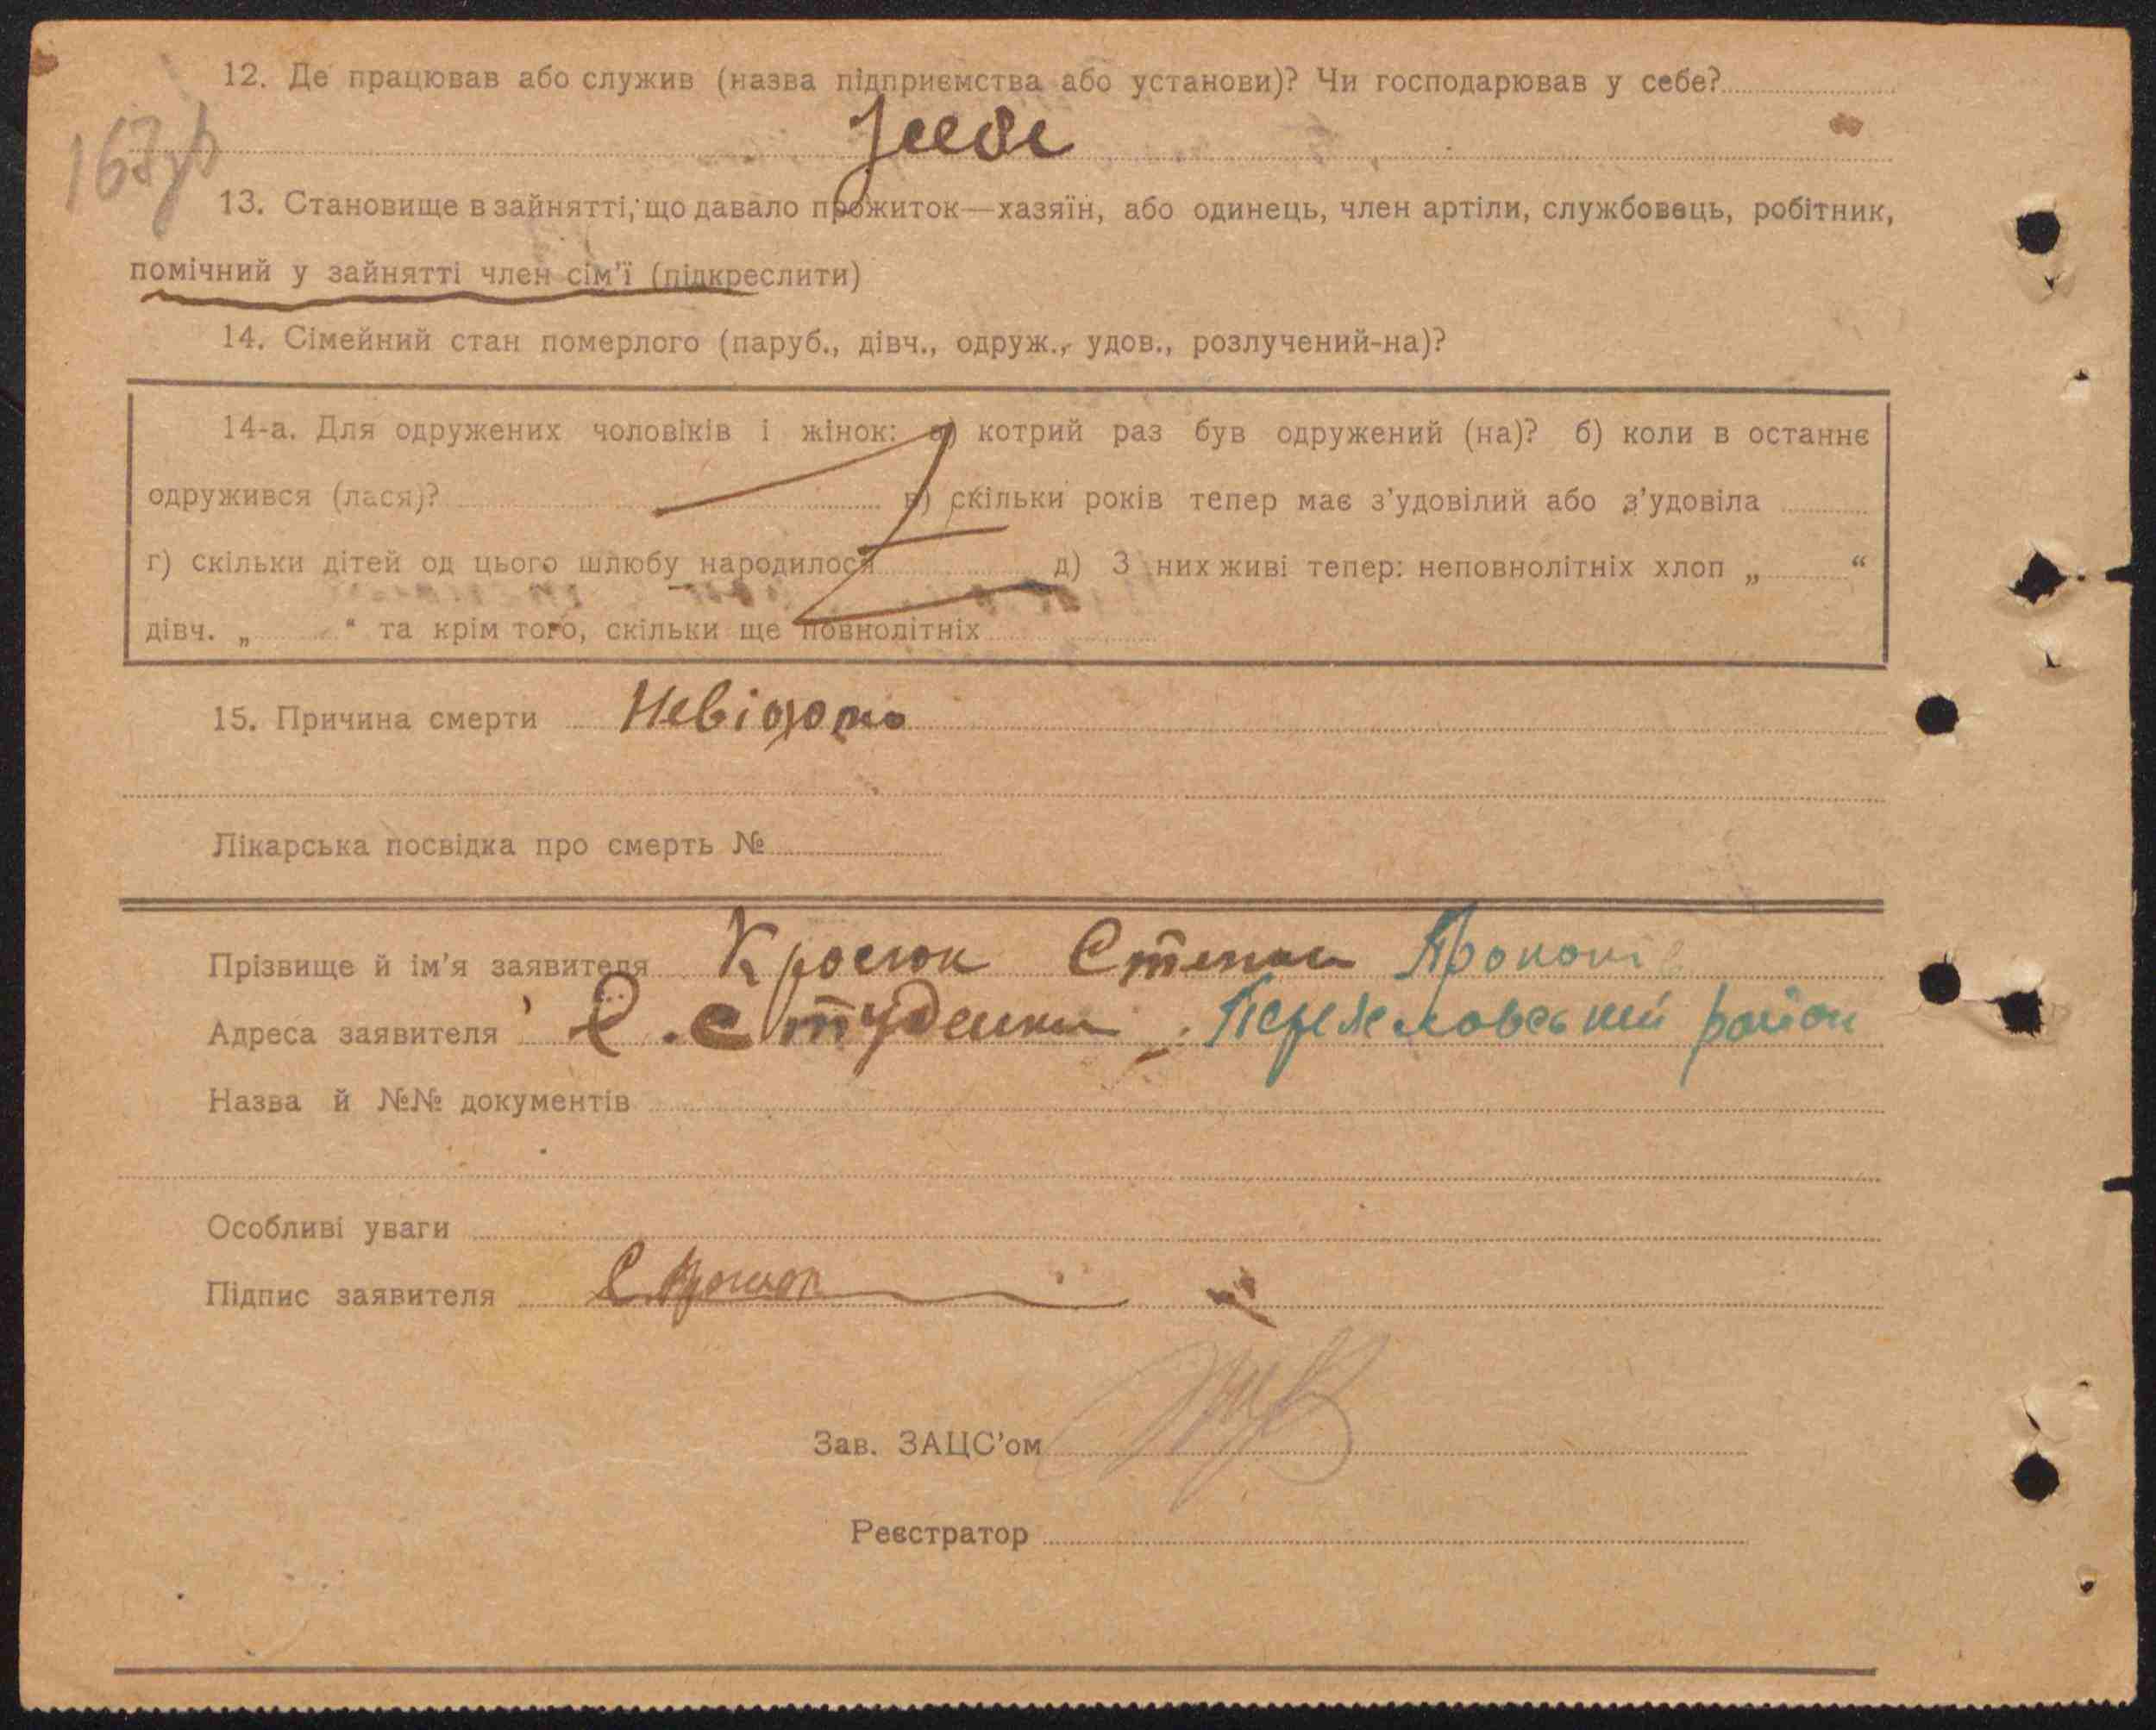 12. Де працював або служив (назва підприємства або установи)? Чи господарював у себе?
У себе
167зв
13. Становище в зайнятті, що давало прожиток—хазяїн, або одинець, член артіли, службовець, робітник,
помічний у зайнятті член сім'ї (підкреслити)
14. Сімейний стан померлого (паруб., дівч., одруж., удов., розлучений-на)?
14-а. Для одружених чоловіків і жінок: а) котрий раз був одружений (на)? б) коли в останнє
одружився (лася)? в) скільки років тепер має з'удовілий або з'удовіла
г) скільки дітей од цього шлюбу народилося д) З них живі тепер: неповнолітніх хлоп „ “
дівч. „ “ та крім того, скільки ще повнолітніх
15. Причина смерти Невідомо
Лікарська посвідка про смерть №
Прізвище й ім'я заявителя Степан
Адреса заявителя с. Студенки Переяславський район
Назва й №№ документів
Особливі уваги
Підпис заявителя
Зав. ЗАЦС'ом
Реєстратор